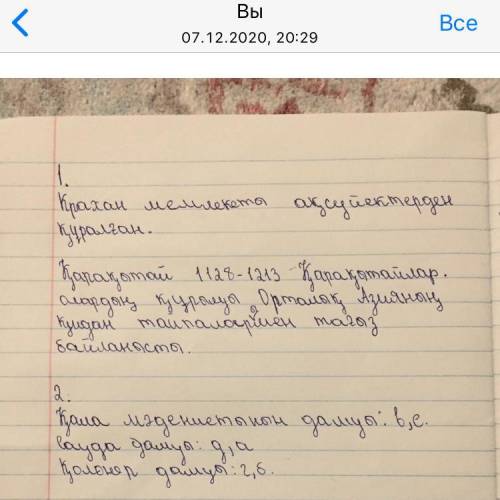 Вы
07.12.2020, 20:29
Все
1.
Крахан мемлекеты ақсүйектерден
құралған.
Қарақытай 1128-1213 Қарақытайлар.
алардың құрылуы Орталық Азияның
тайпаларымен тағыз
байланысты.
2.
Қала мәдениетынын дамуы: в,с.
сауда дамуы: д,а
Қолөнер дамуы: г,б.